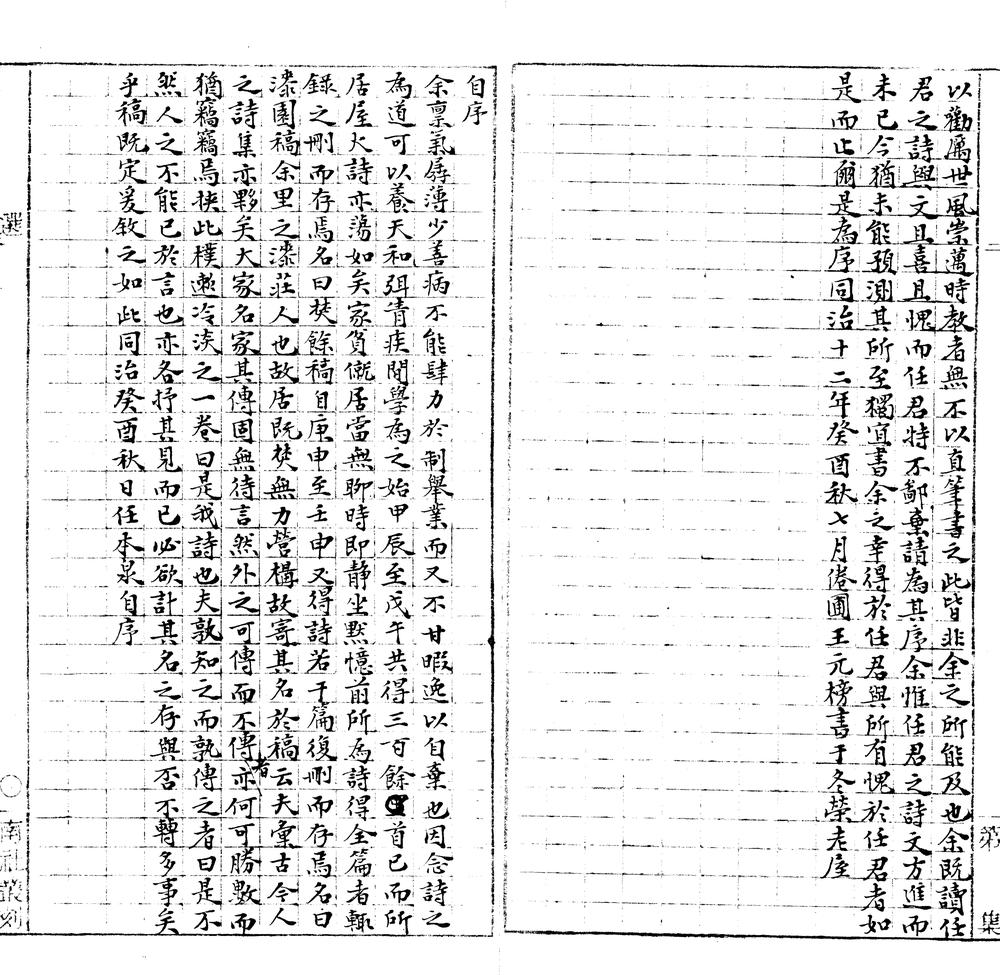 以勸厲世風崇蕅時教者無不以直筆書之此皆非余之所能及也余既讀任
君之詩與文且喜且愧而任君特不鄙棄請為其序余惟任君之詩文方進而
未已今猶未能預測其所至獨宜書余之幸得於任君與所有愧於任君者如
是而止爾是為序同治十二年癸酉秋七月倦圃王元榜書于冬榮老屋
第 集
自序
余禀氣孱薄少善病不能肆力於制舉業而又不甘暇逸以自棄也因念詩之
為道可以養天和弭眚疾閒學為之始甲辰至戊午共得三百餘首已而所
居屋火詩亦蕩如矣家貧僦居當無聊時即静坐默憶前所為詩得全篇者輒
錄之刪而存焉名曰焚餘稿自庚申至壬申又得詩若干篇復刪而存焉名曰
漆園稿余里之漆莊人也故居既焚無力營構故寄其名於稿云夫彙古今人
之詩集亦夥矣大家名家其傳固無待言然外之可傳而不傳者亦何可勝數而
猶竊竊焉挾此樸遬冷淡之一卷曰是我詩也夫孰知之而孰傳之者曰是不
然人之不能已於言也亦各抒其見而已必欲計其名之存與否不轉多事矣
乎稿既定爰敘之如此同治癸酉秋日任本泉自序
選
南社叢刻